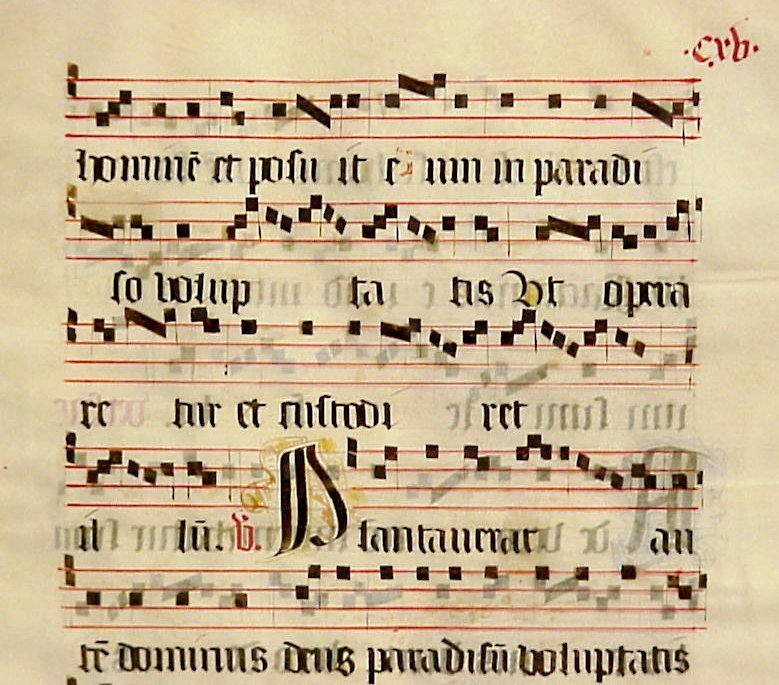 ·cxv·
hominē et posu it e um in paradi
so volup ta tis Vt opera
re tur et custodi ret
il lū. V. Plantauerat au
tē dominus deus paradisū voluptatis